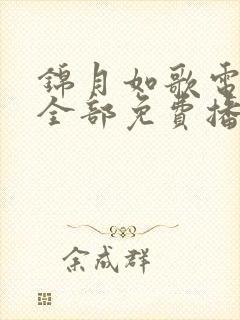 錦月如歌電
全部免費播
余成群